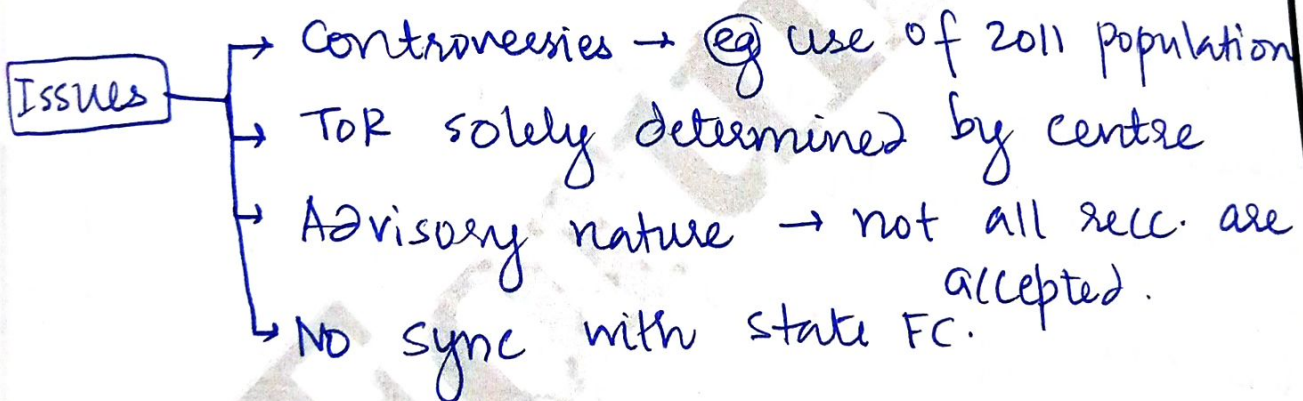 Issues
→ Controversies → eg use of 2011 population
→ TOR solely determined by centre
→ Advisory nature → not all recc. are
accepted.
→ No sync with state FC.